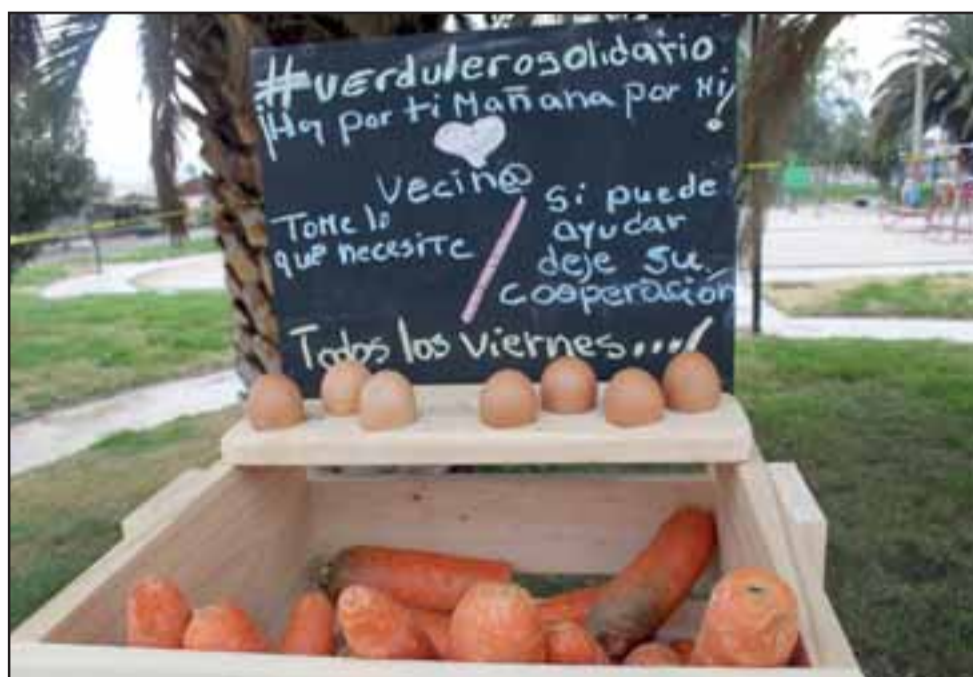 #verdulerosolidario
¡Hoy por ti Mañana por Mi!
Vecin@
Tome lo
que necesite
/
Si puede
ayudar
deje su
cooperación
Todos los viernes....!